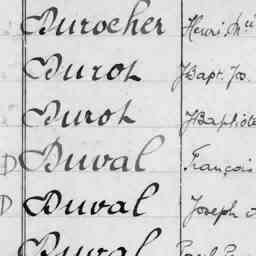 Durocher Henri M
Durot JBapt. Jos.
Durot JBaptiste
D Duval François
D Duval Joseph
Duval Paul